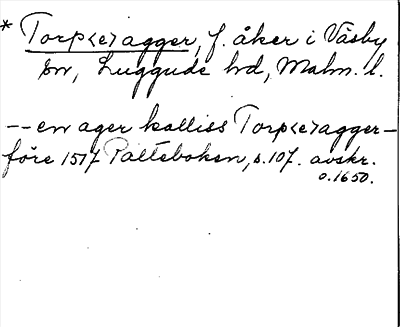 * Torp<e>agger, f. åker i Väsby
sn, Luggude hd, Malm. l.
-- en ager kalliss Torp<e>agger –
före 1517 Palteboken, s. 107. avskr.
o. 1650.